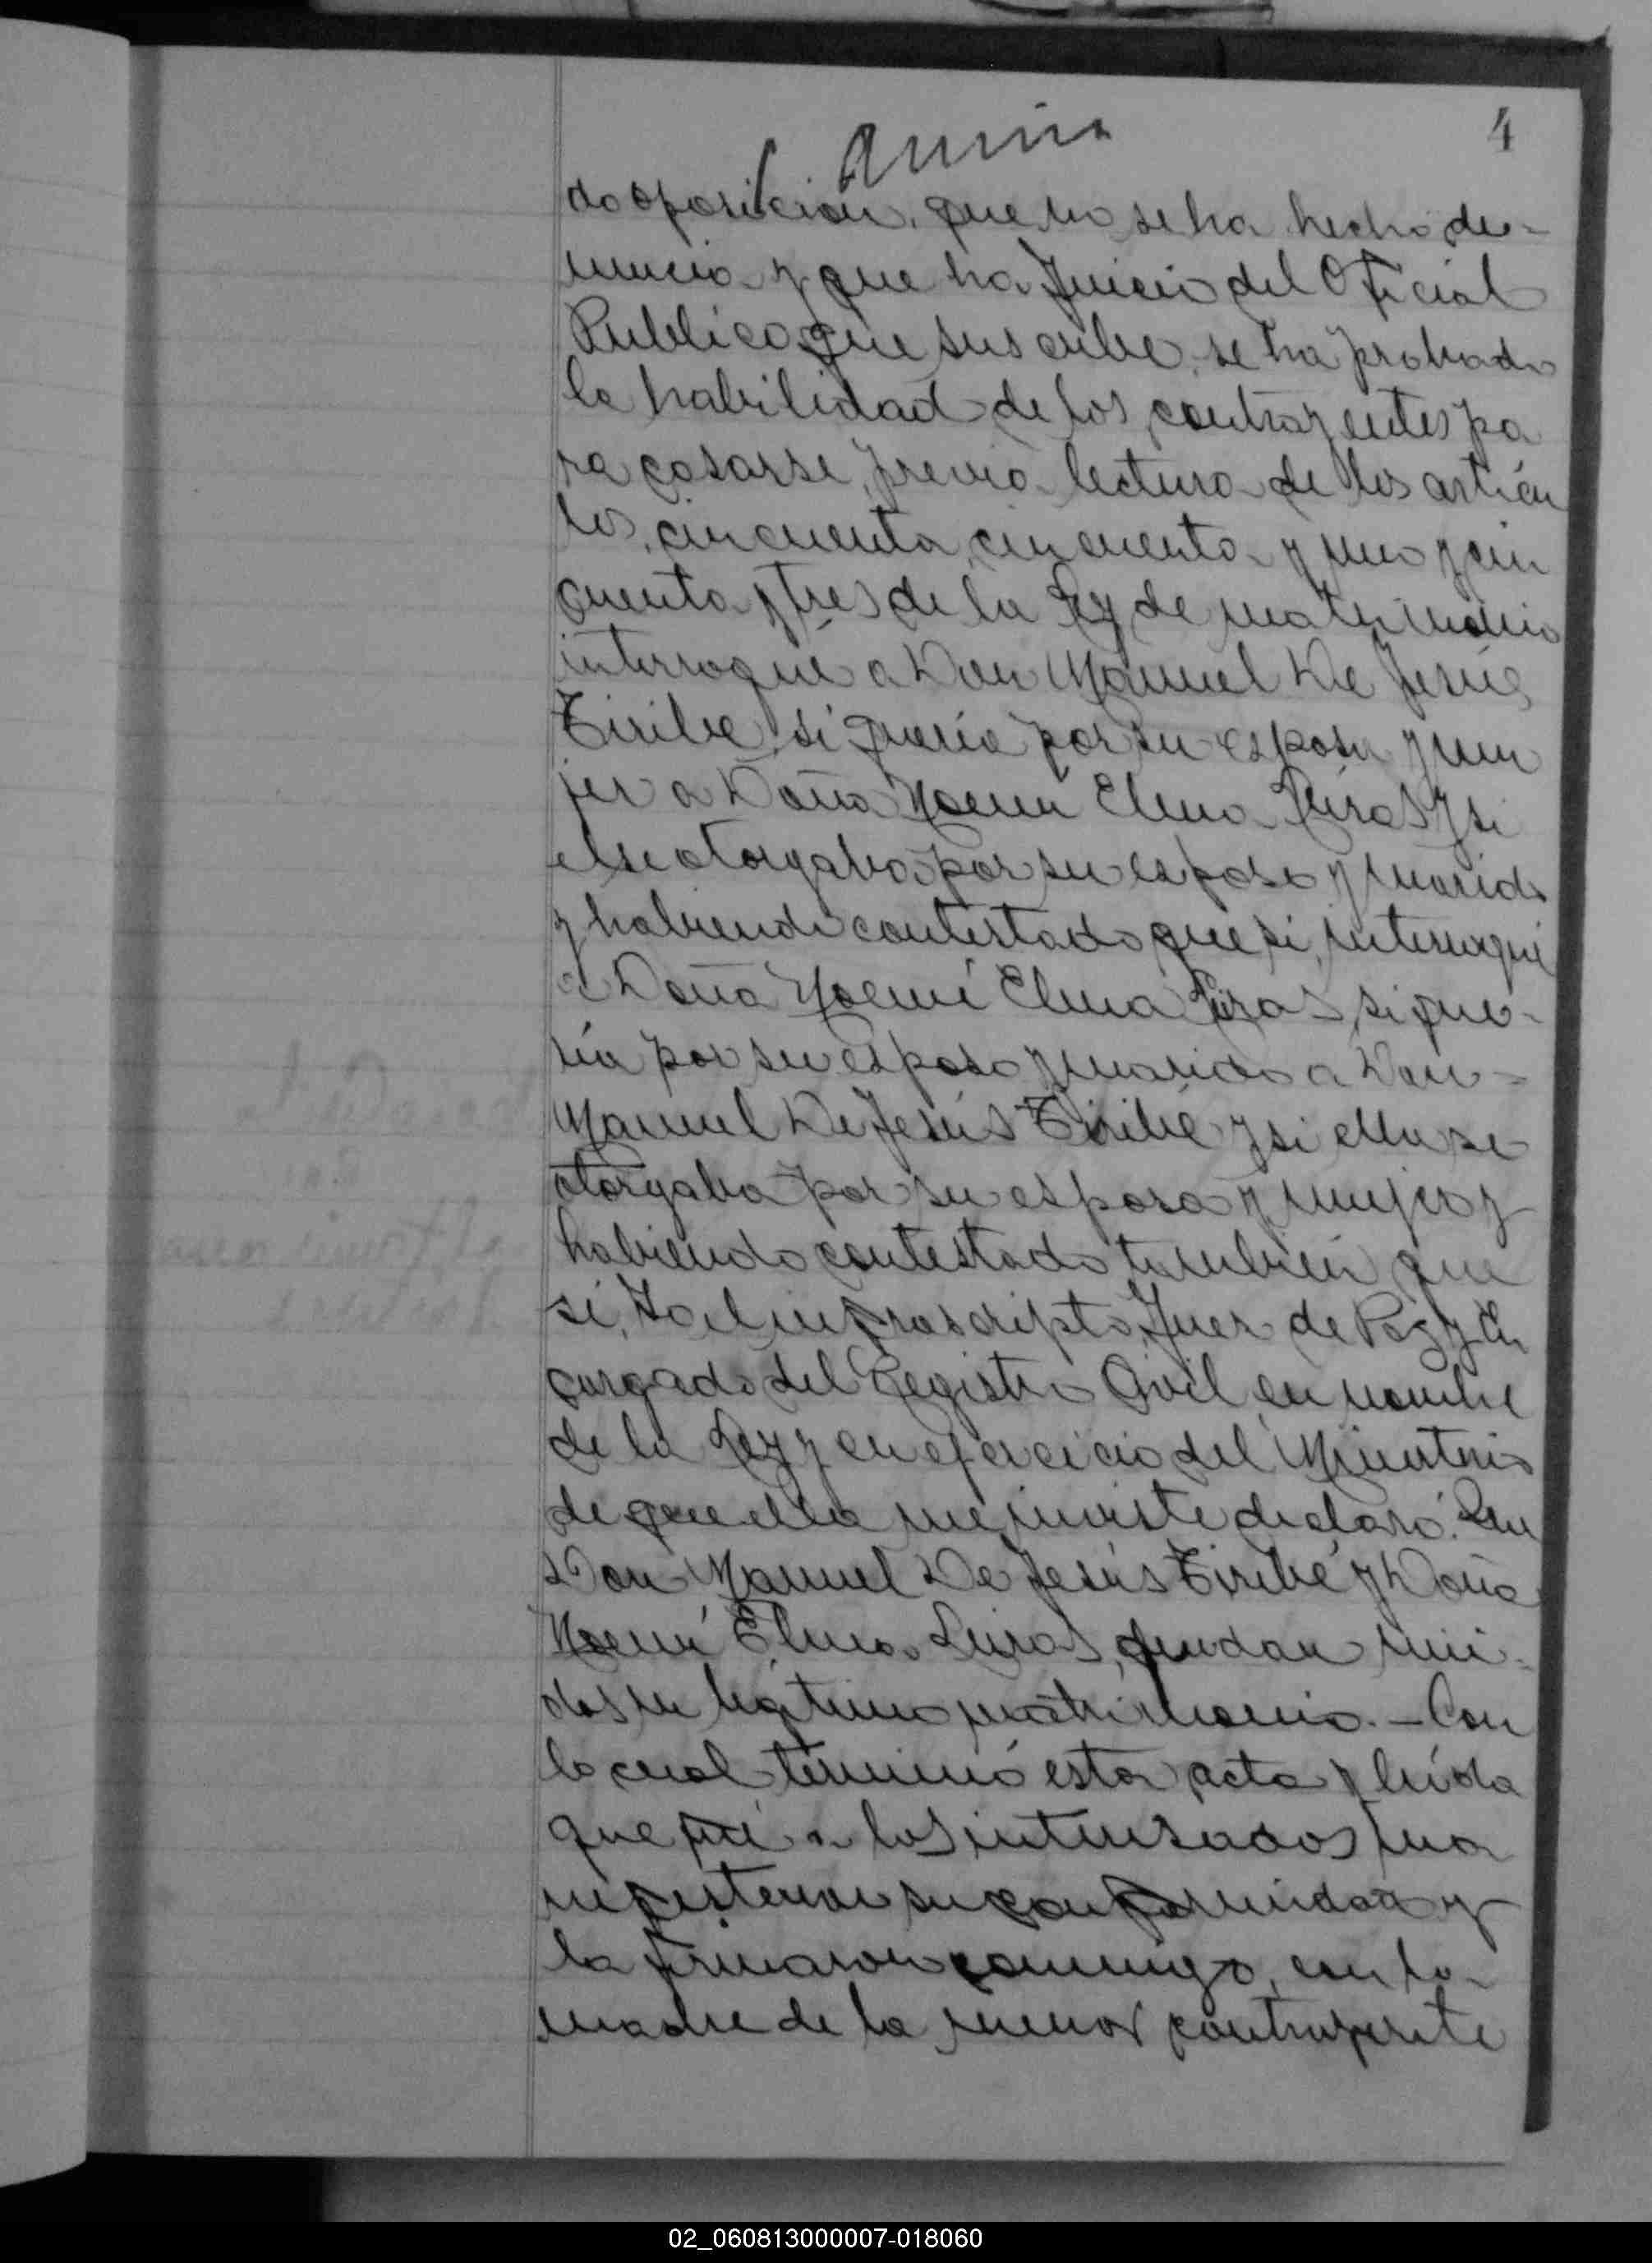 4
do oposicion, que no se ha hecho de-
nuncia y que ha Juicio del Oficial
Publico que suscribe, se ha probado
la habilidad de los contrayentes pa
ra casarse, previa lectura de los artícu
los, cincuenta, cincuenta y uno y cin
cuenta y tres de la Ley de matrimonio
interrogué a Don Manuel De Jesús
Tiribe, si quería por su esposa y mu
jer a Doña Noemí Elma y si
el se otorgaba por su esposo y marido
y habiendo contestado que si, interrogué
a Doña Noemí Elma si que-
ría por su esposo y marido a Don-
Manuel De Jesús Tiribe y si ella se
otorgaba por su esposa y mujer y
habiendo contestado tambien que
si, Yo el infrascripto Juez de Paz y En
cargado del Registro Civil en nombre
de la Ley y en ejercicio del Ministerio
de que ella me inviste declaró: Que
Don Manuel De Jesús Tiribé y Doña
Noemí Elma quedan uni-
dos en legitimo matrimonio.- Con
lo cual terminó esta acta y leída
que fué a los interesados ma
nifestaron su conformidad y
la firmaron conmigo, con la
madre de la menor contrayente
02_060813000007-018060